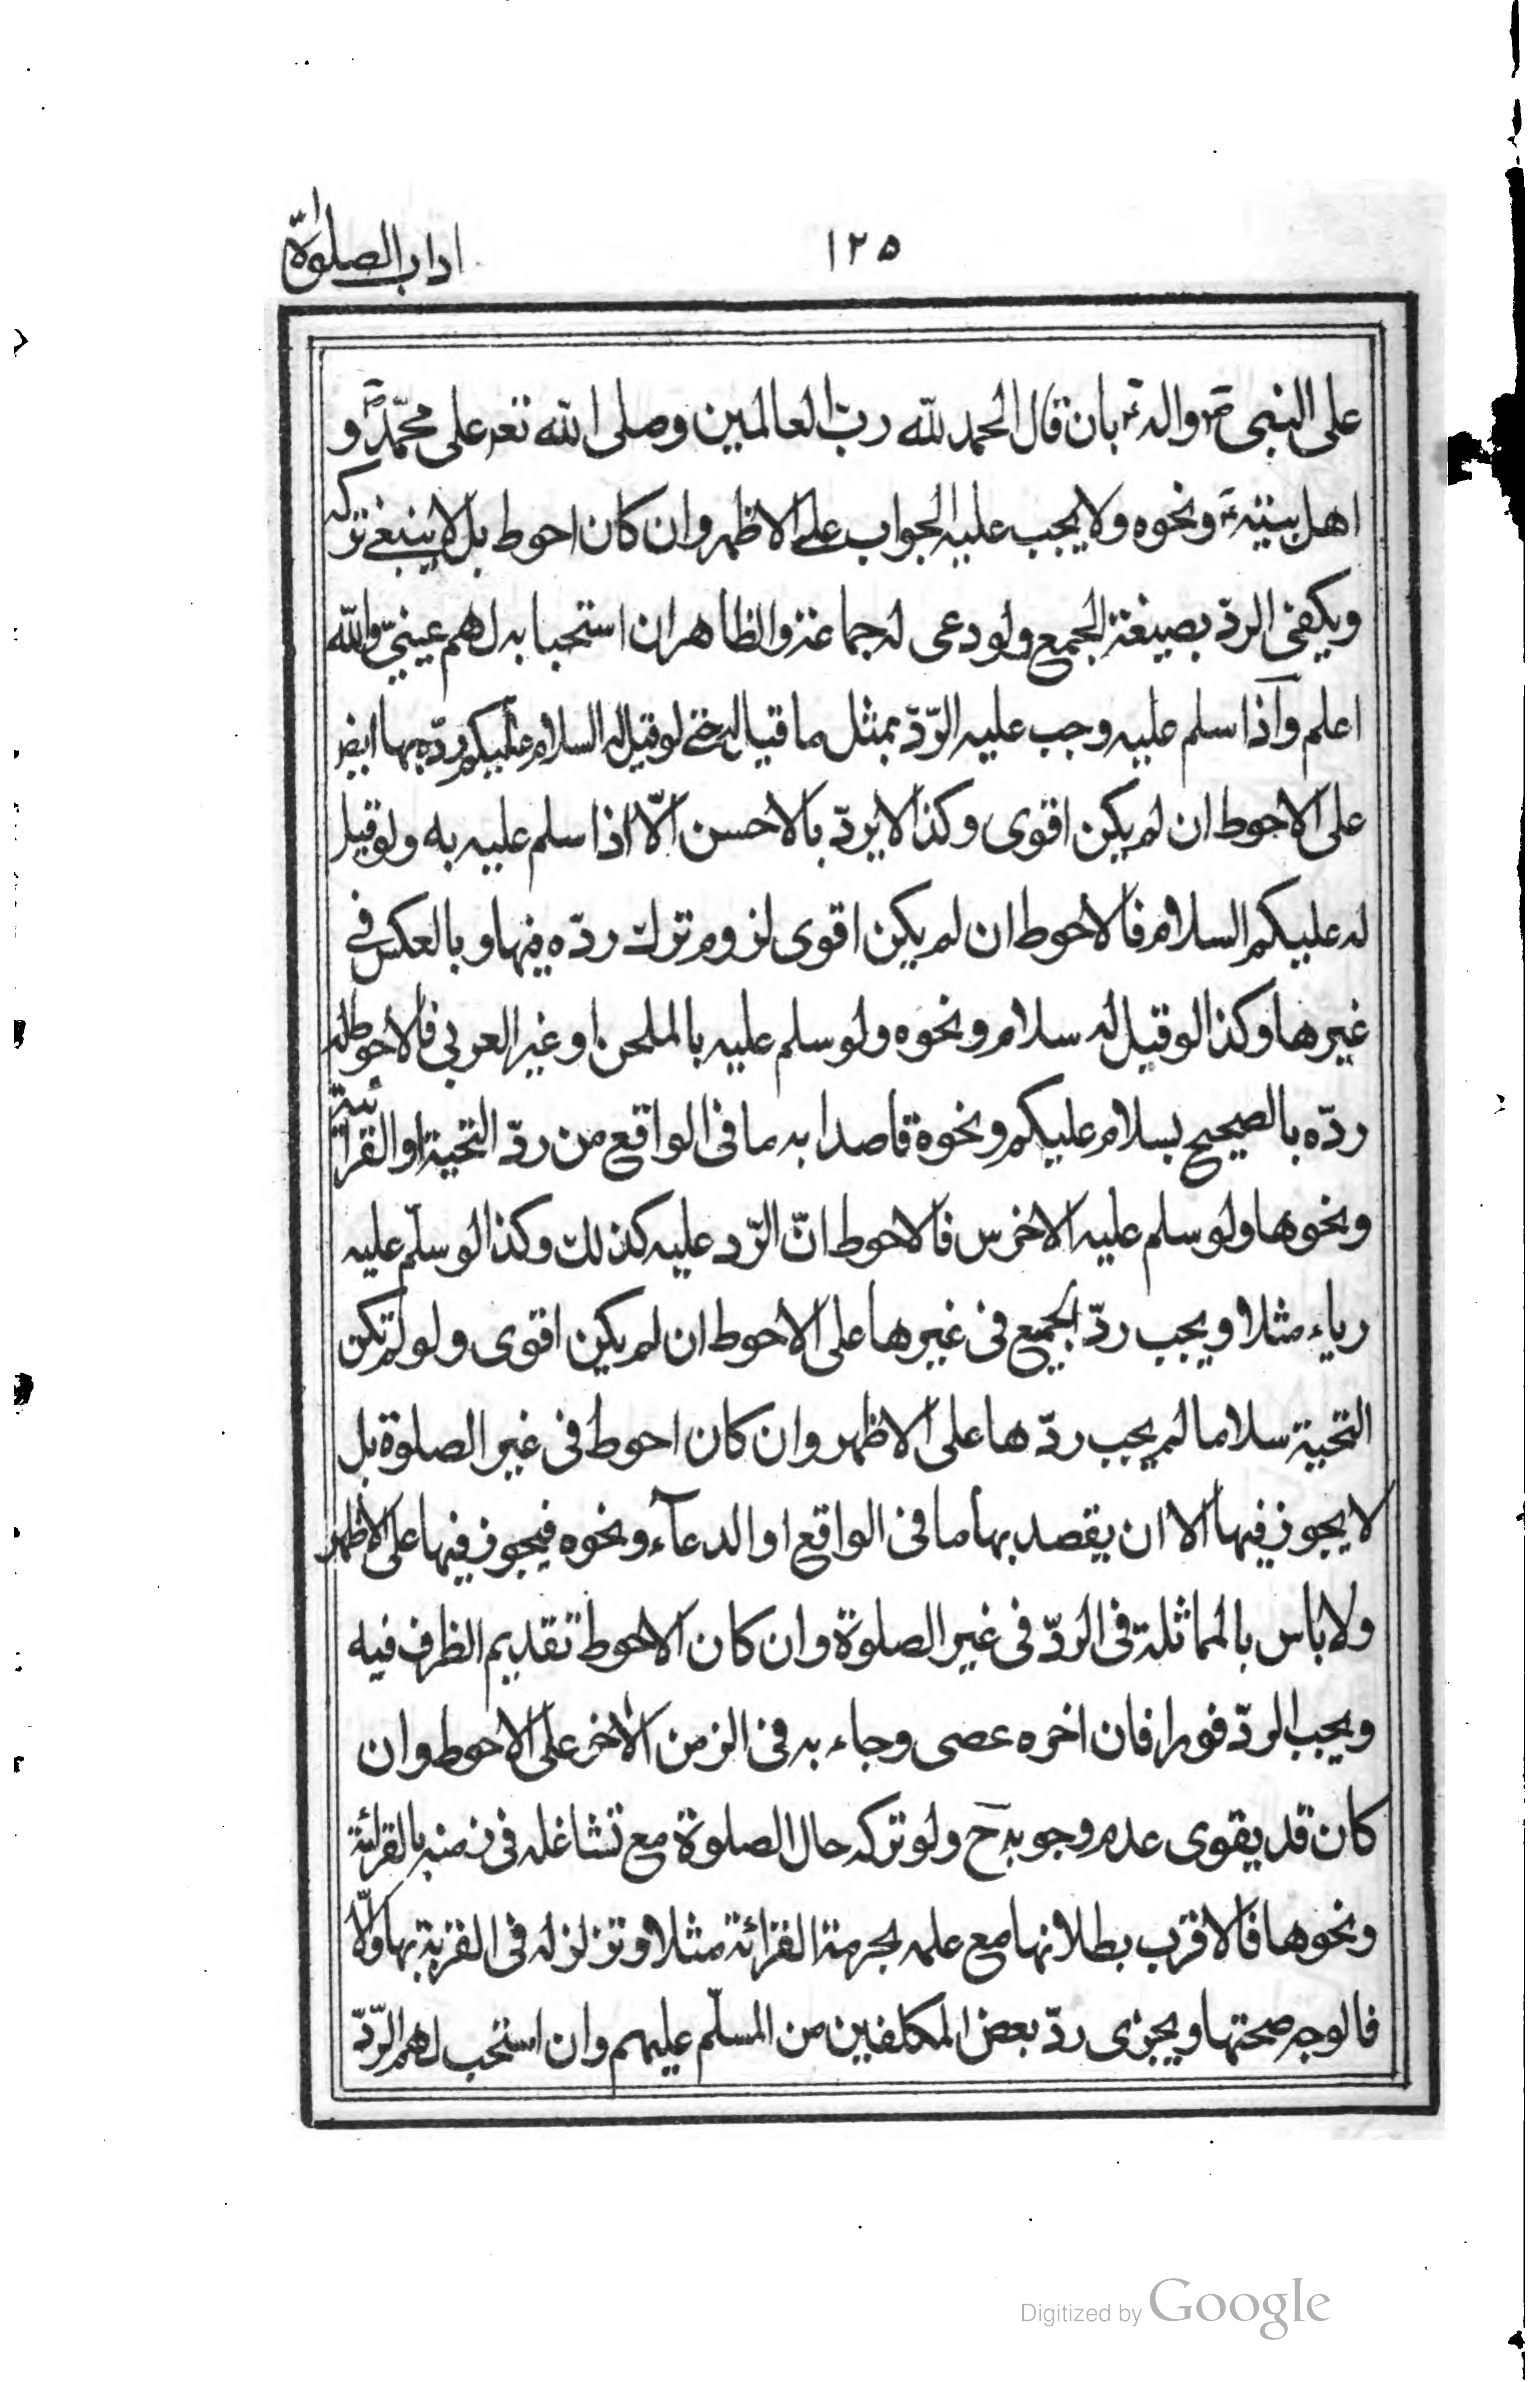 ١٢٥
اداب الصلوة
على النبى ص واله ع بان قال الحمد لله رب العالمين وصلى الله تعر على محمّد ص و
اهل بيته ع ونحوه ولا يجب عليه الجواب على الاظهر وان كان احوط بل لا ينبغى تركه
ويكفى الردّ بصيغة الجمع ولو دعى له جماعة والظاهر ان استحبابه لهم عينىّ والله
اعلم وآذا سلم عليه وجب عليه الرّدّ بمثل ما قيل له حتى لو قيل له السلام عليكم ردّه بها ايضر
على الاحوط ان لم يكن اقوى وكذا لا يردّ بالاحسن الّا اذا سلم عليه به ولو قيل
له عليكم السلام فالاحوط ان لم يكن اقوى لزوم ترك ردّه فيها وبالعكس فى
غيرها وكذا لو قيل له سلام ونحوه ولو سلم عليه بالملحن او غير العربى فالاحوط له
ردّه بالصحيح بسلام عليكم ونحوة قاصدا به ما فى الواقع من ردّ التحية او القرائية
ونحوها ولو سلم عليه الاخرس فالاحوط انّ الرّد عليه كذلك وكذا لو سلّم عليه
رياء مثلا ويجب ردّ الجميع فى غيرها على الاحوط ان لم يكن اقوى ولو لم تكن
التحية سلاما لم يجب ردّها على الاظهر وان كان احوط فى غير الصلوة بل
لا يجوز فيها الا ان يقصد بها ما فى الواقع او الدعآء ونحوه فيجوز فيها على الاظهر
ولا باس بالمماثلة فى الردّ فى غير الصلوة وان كان الاحوط تقديم الظرف فيه
ويجب الردّ فورا فان اخره عصى وجاء به فى الزمن الاخر على الاحوط وان
كان قد يقوى عدم وجوبه ح ولو تركه حال الصلوة مع تشاغله فى زمنه بالقرائة
ونحوها فالاقرب بطلانها مع علمه بحرمة القرائة مثلا وتزلزله فى القربة بها والّا
فالوجه صحتها ويجزى ردّ بعض المكلفين من المسلّم عليهم وان استحب لهم الرّدّ
Digitized by Google